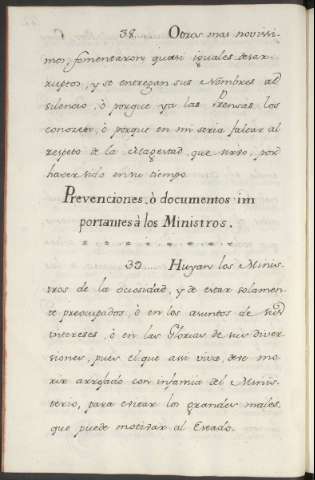 38..... Otros mas novissi-
mos, fomentaron quasi iguales desar-
reglos, y se entregan sus Nombres al
silencio, ò porque ya las Prensas los
conocen, ò porque en mi seria faltar al
respeto de la Magestad, que sirvo, por
haver sido en mi tiempo.
Prevenciones, ò documentos im
portantes à los Ministros.
39..... Huyan los Minis-
tros de la ociosidad, y de estar solamen-
te preocupados, ò en los asuntos de sus
intereses, ò en las Glorias de sus diver-
siones, pues el que assi vive, deve mo-
rir arrojado con infamia del Minis-
terio, para evitar los grandes males,
que puede motivar al Estado.